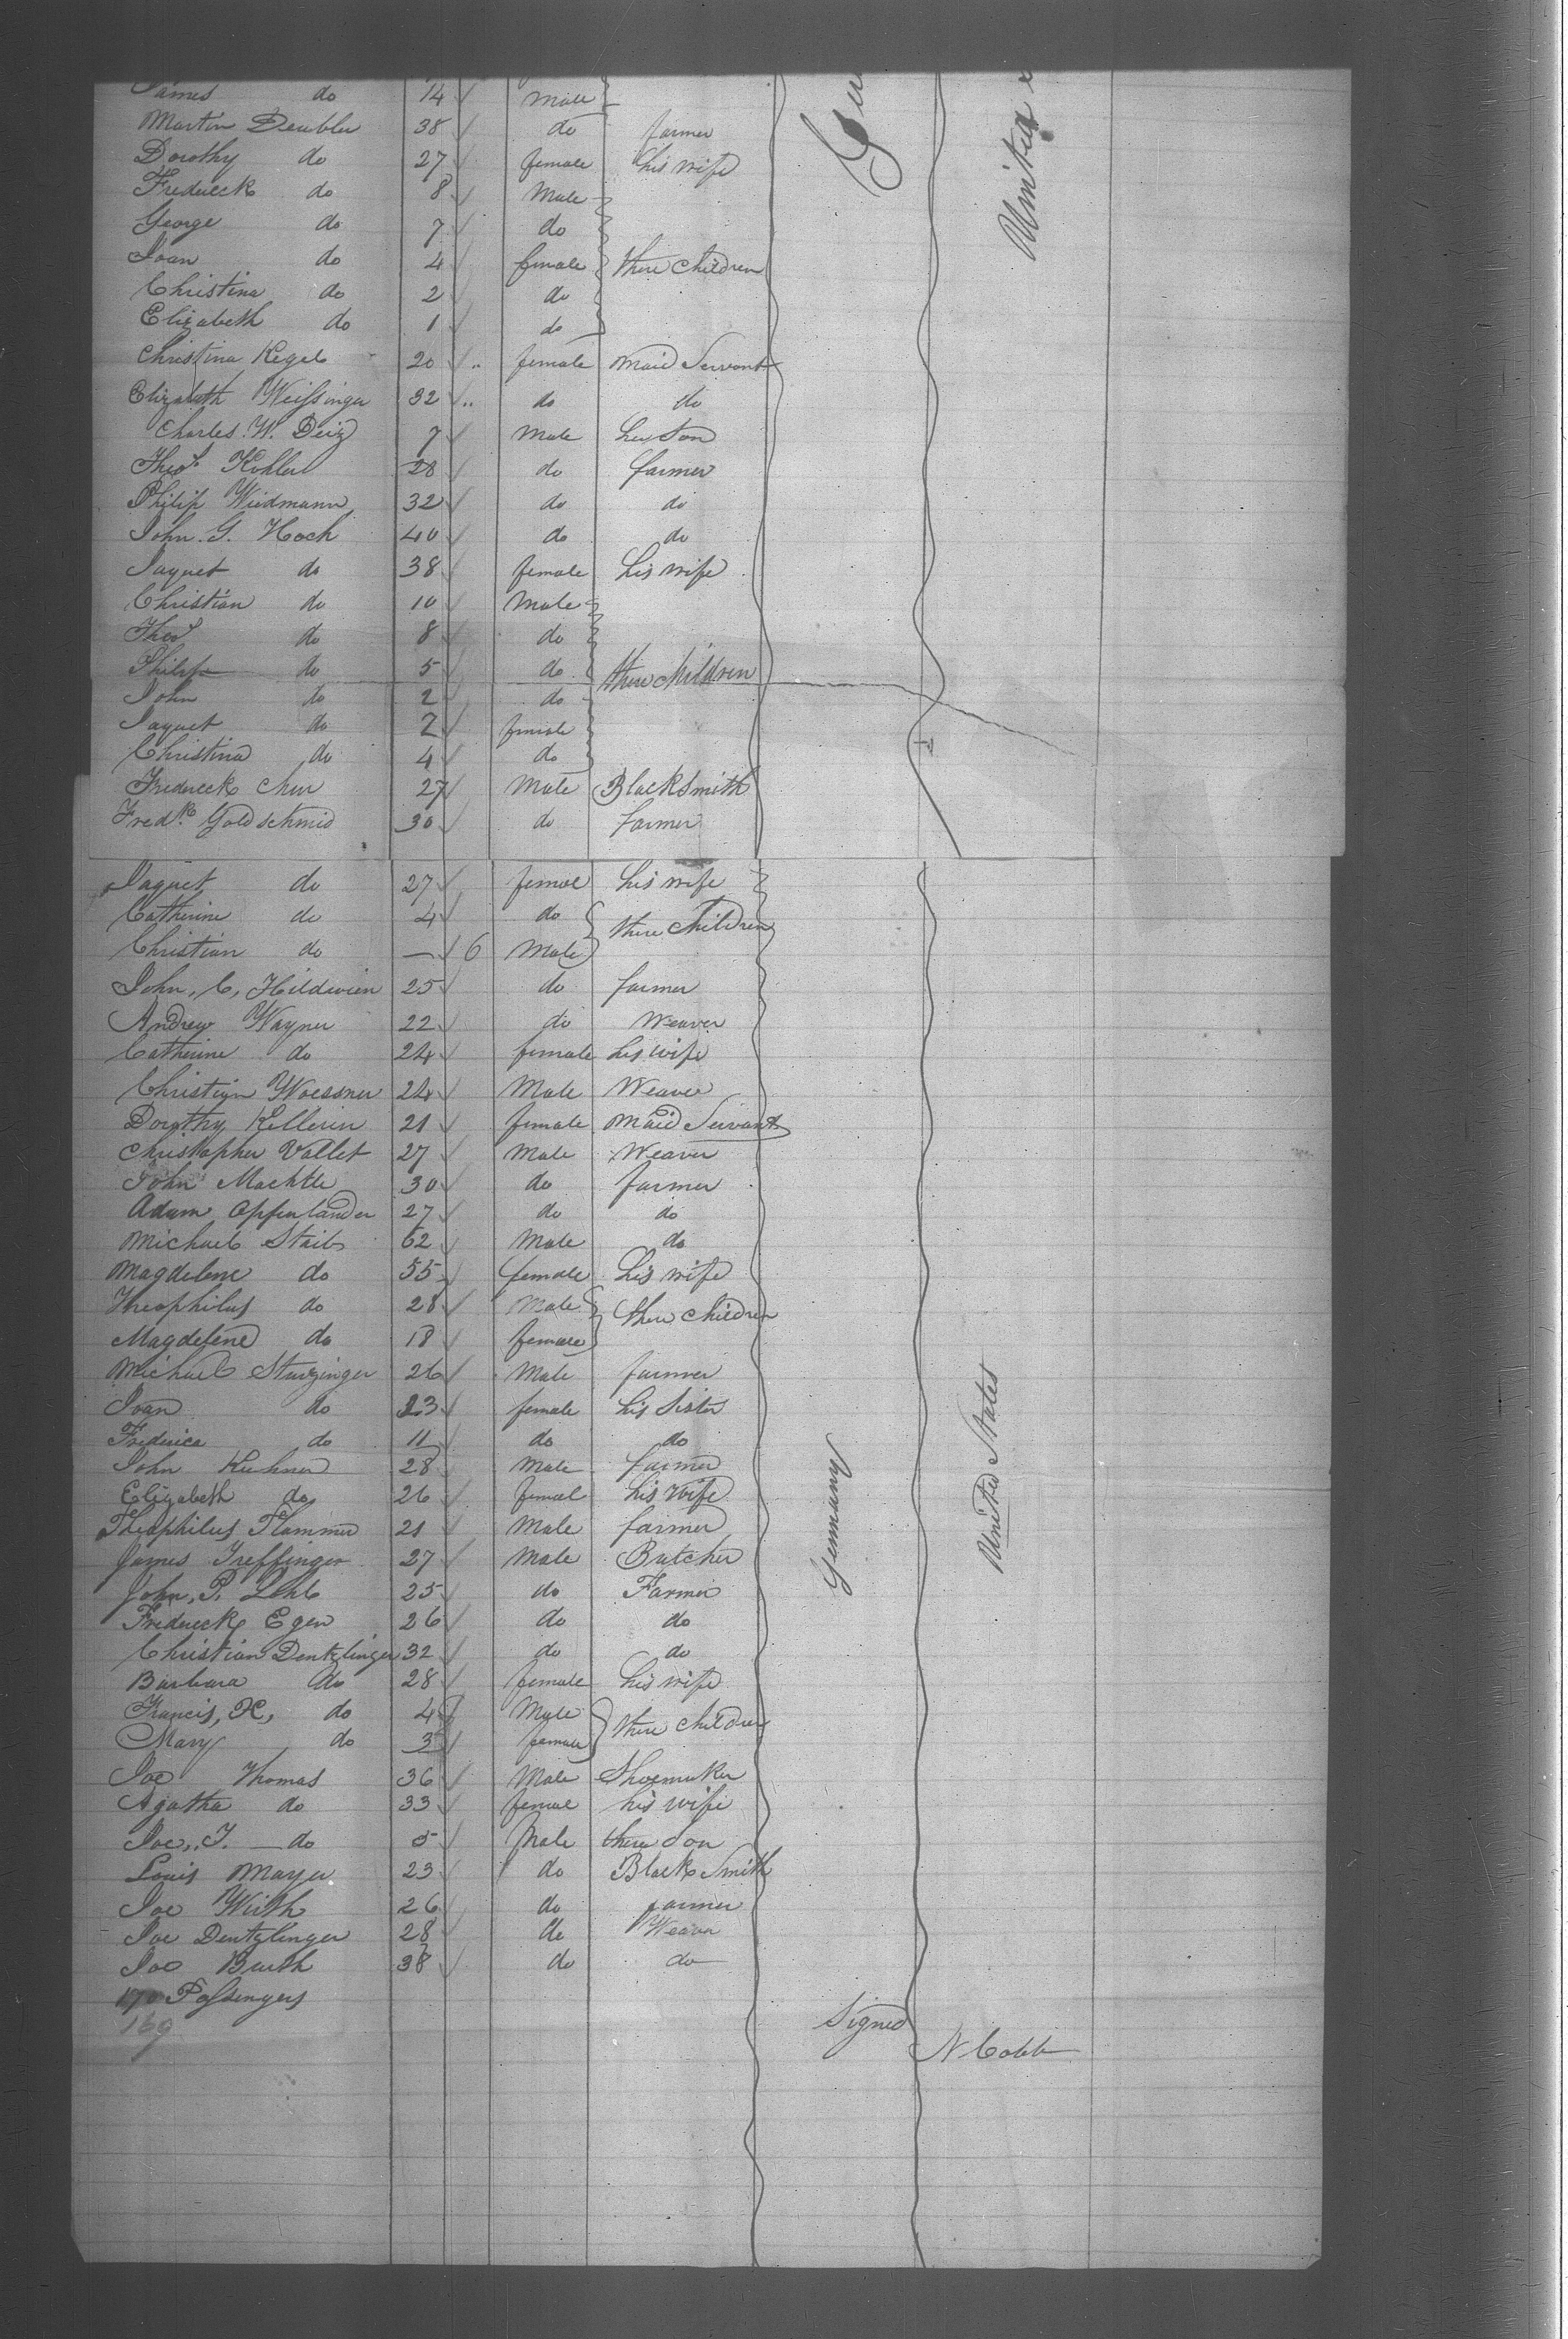 James do 14 Male
Martin Deubler 38 do farmer
Dorothy do 27 female his wife
Fredereck do 8 Male
George do 7 do
Joan do 4 female there children
Christina do 2 do
Elizabeth do 1 do
Christina Kegel 20 female Maid Servant
Elizabeth Weissinger 32 do do
Charles W. Deiz 7 Male her Son
Theo Kohler 28 do farmer
Philip Wiedmann 32 do do
John G. Hoch 40 do do
Jaquet do 38 female his wife
Christian do 10 Male
Theo do 8 do
Philip do 5 do there children
John do 2 do
Jaquet do 2 female
Christina do 4 do
Fredereck Chur 27 Male Blacksmith
Fredk Goldschmid 30 do farmer
Jaquet do 27 femal his wife
Catherine do 4 do there children
Christian do — 6 Male
John, C, Hildwein 25 do farmer
Andrew Wayner 22 do Weaver
Catherine do 24 female his wife
Christian Woessner 24 Male Weaver
Dorothy Kellerin 21 female Maid Servant
Christopher Vallet 27 Male Weaver
John Machtle 30 do farmer
Adam Oppenlander 27 do do
Michael Staib 62 Male do
Magdelene do 55 female his wife
Theophilus do 28 Male there children
Magdelene do 18 female
Michael Sturzinger 26 Male farmer
Joan do 23 female his Sister
Frederica do 11 do do
John Kuhner 28 Male farmer
Elizabeth do 26 femal his wife
Theophilus Flammer 21 Male farmer
James Treffinger 27 Male Butcher
John, P. Lehl 25 do Farmer
Fredereck Egen 26 do do
Christian Dentzlinger 32 do do
Barbara do 28 female his wife
Francis, X, do 4 Male there children
Mary do 3 female
Joe Thomas 36 Male Shoemaker
Agatha do 33 femal his wife
Joe, J. do 5 Male there Son
Louis Mayer 23 do Black Smith
Joe Wirth 26 do farmer
Joe Dentzlinger 28 do Weaver
Joe Burth 38 do do
170 Passengers
169
Signed
N Cobb
United
Germany
United States